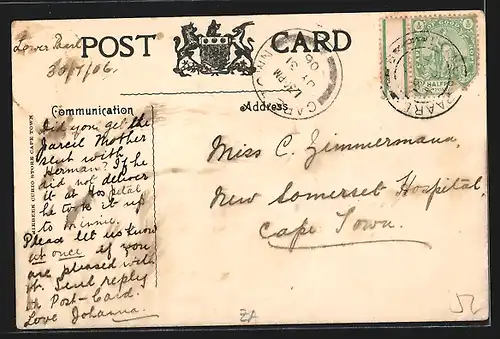 POST CARD
Lower Paarl
30/7/06.
Communication
Address.
Did you get the
parcil Mother
sent with
Herman? If he
did not deliver
it at Hospital
he took it up
to Minnie.
Please let us know
at once if you
are pleased with
it. Send reply
on Post-Card.
Love Johanna.
Miss C. Zimmermann,
New Somerset Hospital,
Cape Town.
CURIO STORE CAPE TOWN
CAPE TOWN
1 PM
JY 31
06
PAARL
HALF
ZA